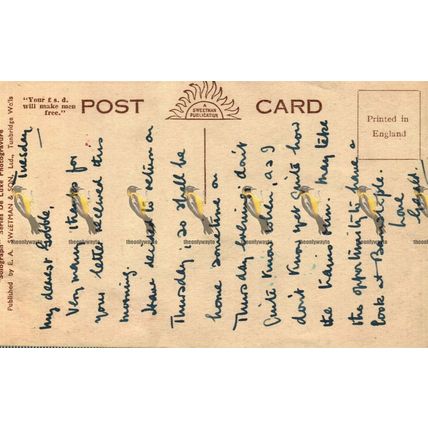 "Your £ s. d.
will make men
free."
POST CARD
A
SWEETMAN
PUBLICATION
Printed in
England
"Solograph" Series De Luxe Photogravure
Published by E. A. SWEETMAN & SON, Ltd., Tunbridge Wells
Tuesday
My dearest
Very many thanks for
your letter received this
morning.
Have decided to return on
Thursday so shall be
home sometime on
Thursday evening, don't
quite know when, as I
don't know yet quite how
the trains run. May take
the opportunity & have a
look at Barnstaple.
Love
theonlywayto
theonlywayto
theonlywayto
theonlywayto
theonlywayto
theonlywayto
theonlywayto